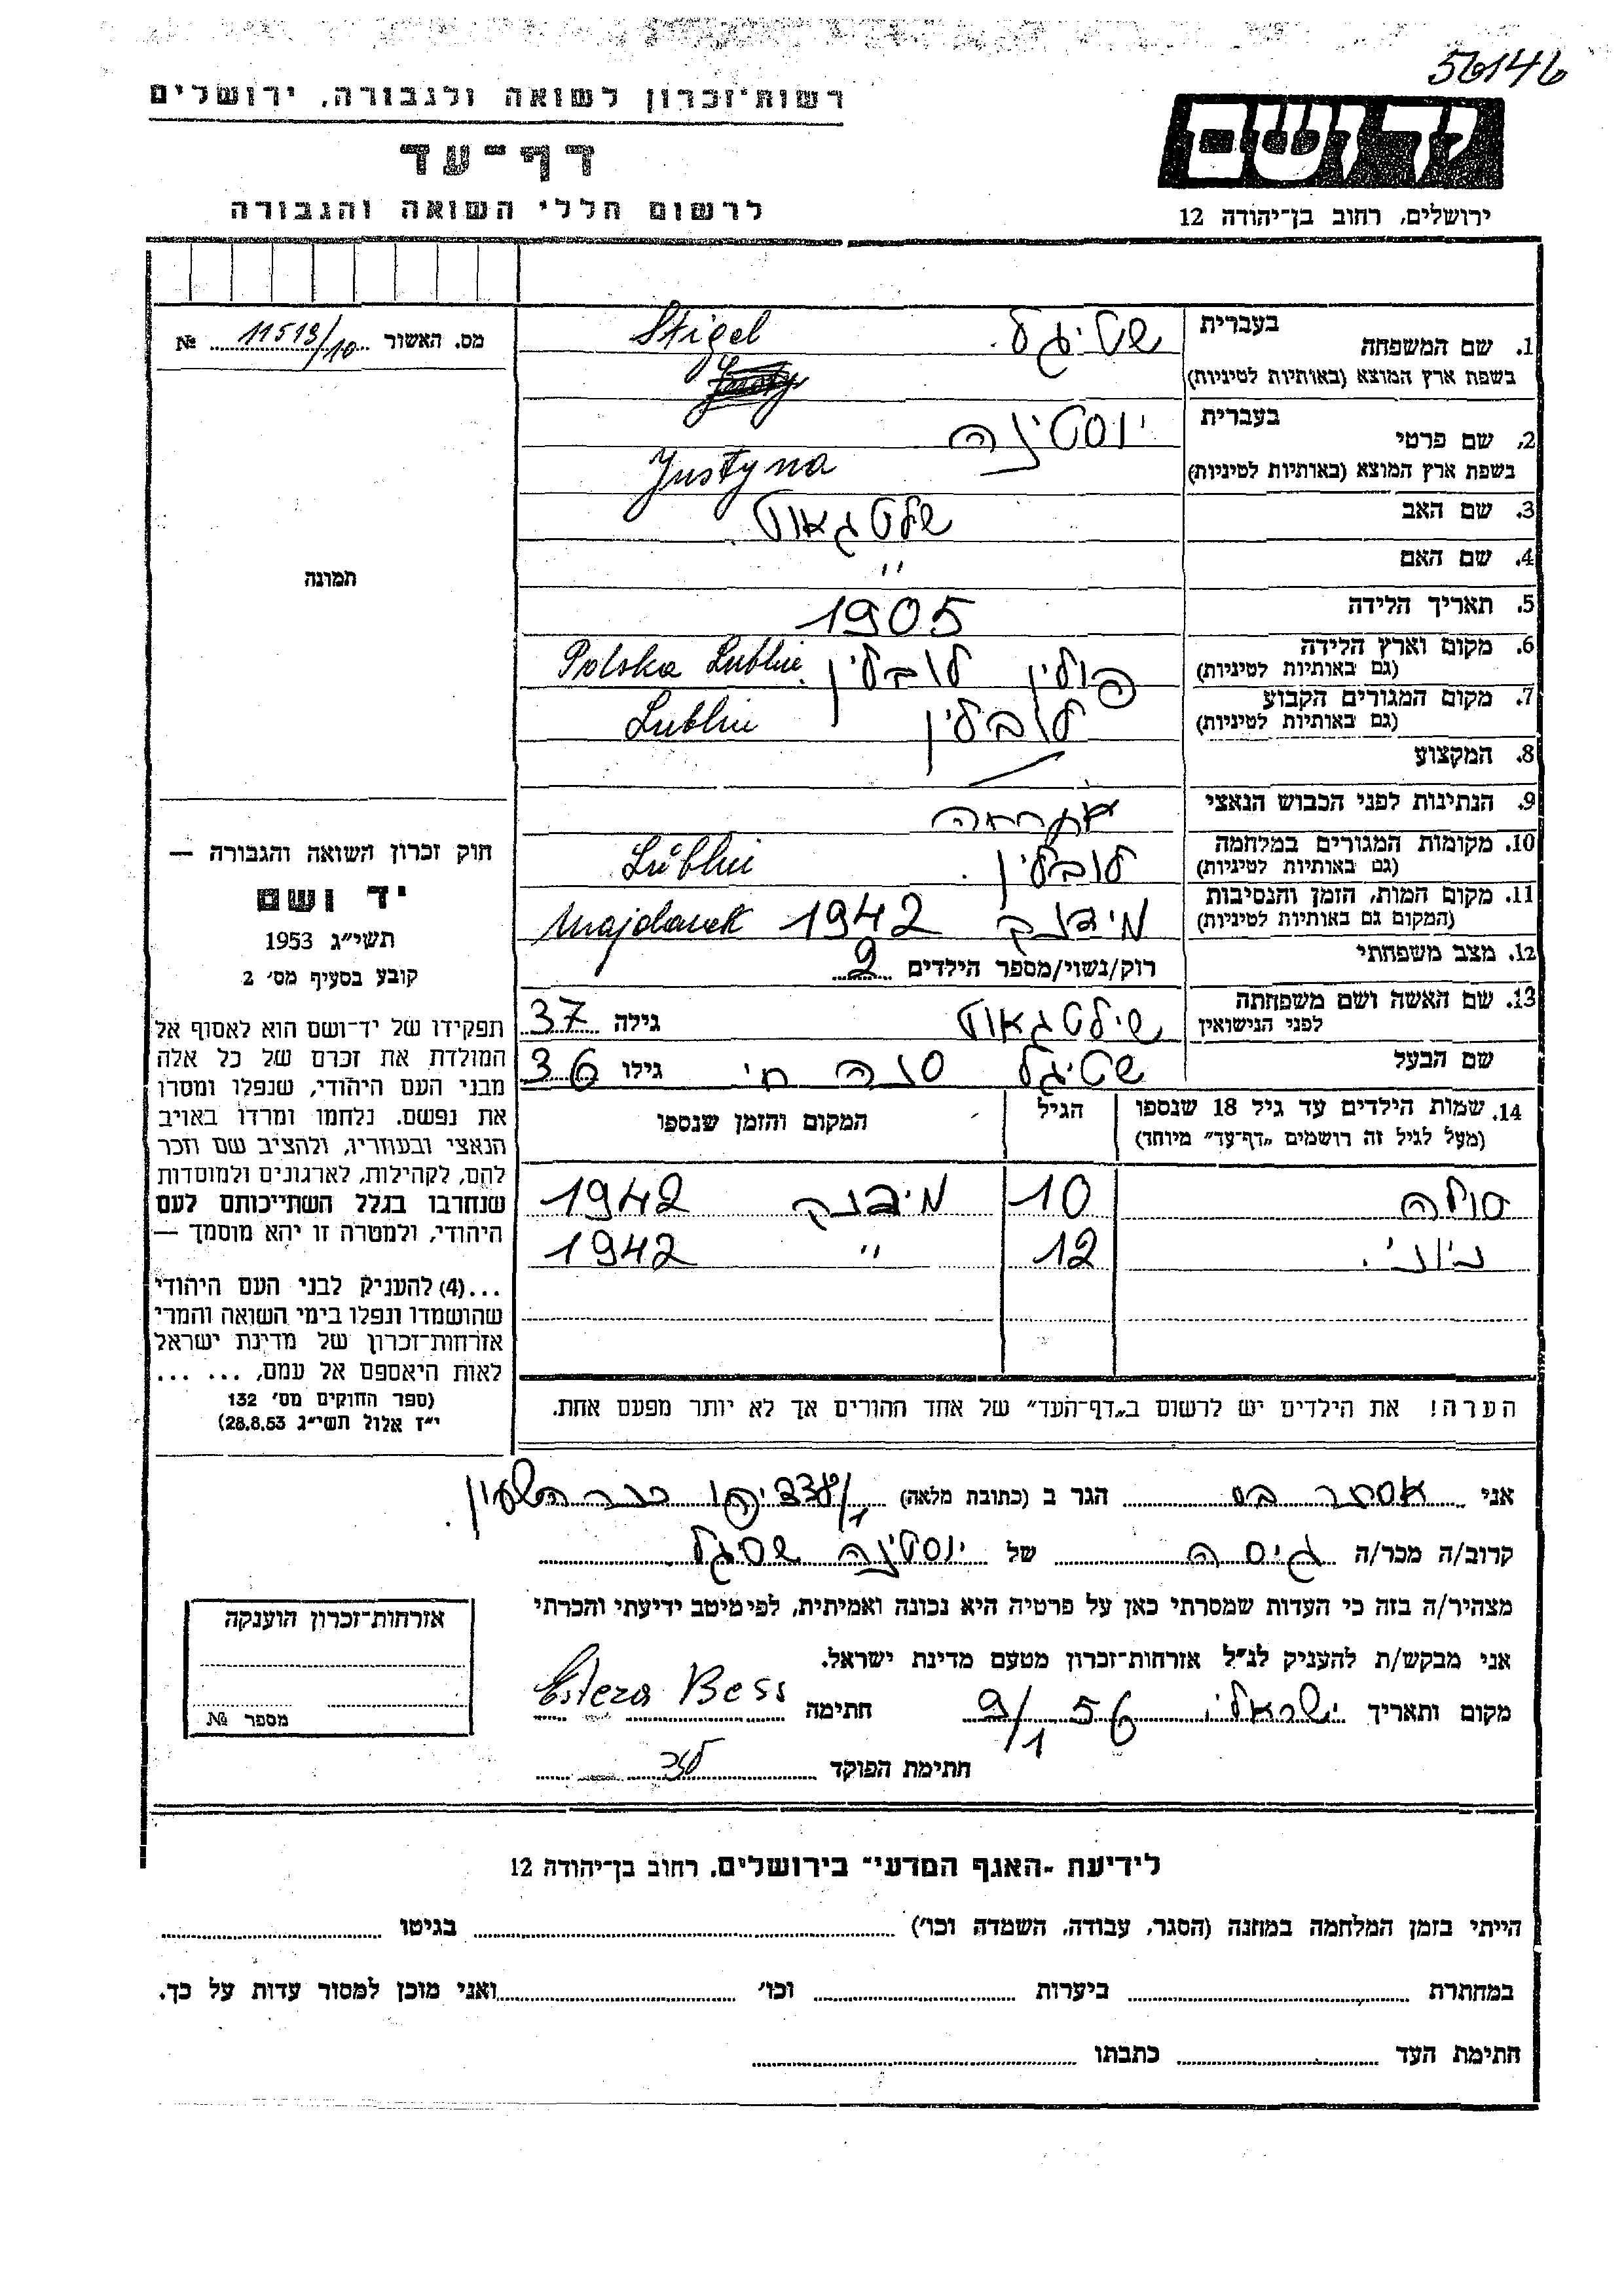 56146
רשות־זכרון לשואה ולגבורה, ירושלים
דף־עד
לרשום חללי השואה והגבורה
ידושם
ירושלים, רחוב בן־יהודה 12
מס. האשור 11513/10 №
תמונה
חוק זכרון השואה והגבורה —
יד ושם
תשי״ג 1953
קובע בסעיף מס׳ 2
תפקידו של יד־ושם הוא לאסוף אל
המולדת את זכרם של כל אלה
מבני העם היהודי, שנפלו ומסרו
את נפשם. נלחמו ומרדו באויב
הנאצי ובעוזריו, ולהציב שם וזכר
להם, לקהילות, לארגונים ולמוסדות
שנחרבו בגלל השתייכותם לעם
היהודי, ולמטרה זו יהא מוסמך —
...(4) להעניק לבני העם היהודי
שהושמדו ונפלו בימי השואה והמרי
אזרחות־זכרון של מדינת ישראל
לאות היאספם אל עמם, ... ...
(ספר החוקים מס׳ 132
י״ז אלול תשי״ג 28.8.53)
1. שם המשפחה בעברית שטיגל. Stigel
בשפת ארץ המוצא (באותיות לטיניות)
2. שם פרטי בעברית יוסטינה
בשפת ארץ המוצא (באותיות לטיניות) Justyna
3. שם האב שלטגאוט
4. שם האם ״
5. תאריך הלידה 1905
6. מקום וארץ הלידה פולין לובלין Polska Lublin
(גם באותיות לטיניות)
7. מקום המגורים הקבוע לובלין Lublin
(גם באותיות לטיניות)
8. המקצוע
9. הנתינות לפני הכבוש הנאצי
10. מקומות המגורים במלחמה לובלין. Lublin
(גם באותיות לטיניות)
11. מקום המות, הזמן והנסיבות מידנק 1942 Majdanek
(המקום גם באותיות לטיניות)
12. מצב משפחתי רוק/נשוי/מספר הילדים 2
13. שם האשה ושם משפחתה שילטגאוט גילה 37
לפני הנישואין
שם הבעל שטיגל חי גילו 36
14. שמות הילדים עד גיל 18 שנספו הגיל המקום והזמן שנספו
(מעל לגיל זה רושמים „דף־עד״ מיוחד)
10 מידנק 1942
12 ״ 1942
הערה! את הילדים יש לרשום ב„דף־העד״ של אחד ההורים אך לא יותר מפעם אחת.
אני אסתר בס הגר ב (כתובת מלאה)
קרוב/ה מכר/ה גיסה של יוסטינה שטיגל
מצהיר/ה בזה כי העדות שמסרתי כאן על פרטיה היא נכונה ואמיתית, לפי מיטב ידיעתי והכרתי
אני מבקש/ת להעניק לנ״ל אזרחות־זכרון מטעם מדינת ישראל.
מקום ותאריך 9/1 56 חתימה Estera Bess
חתימת הפוקד
אזרחות־זכרון הוענקה
מספר №
לידיעת ־האגף המדעי־ בירושלים, רחוב בן־יהודה 12
הייתי בזמן המלחמה במחנה (הסגר, עבודה, השמדה וכו׳) בגיטו
במחתרת ביערות וכו׳ ואני מוכן למסור עדות על כך.
חתימת העד כתבתו